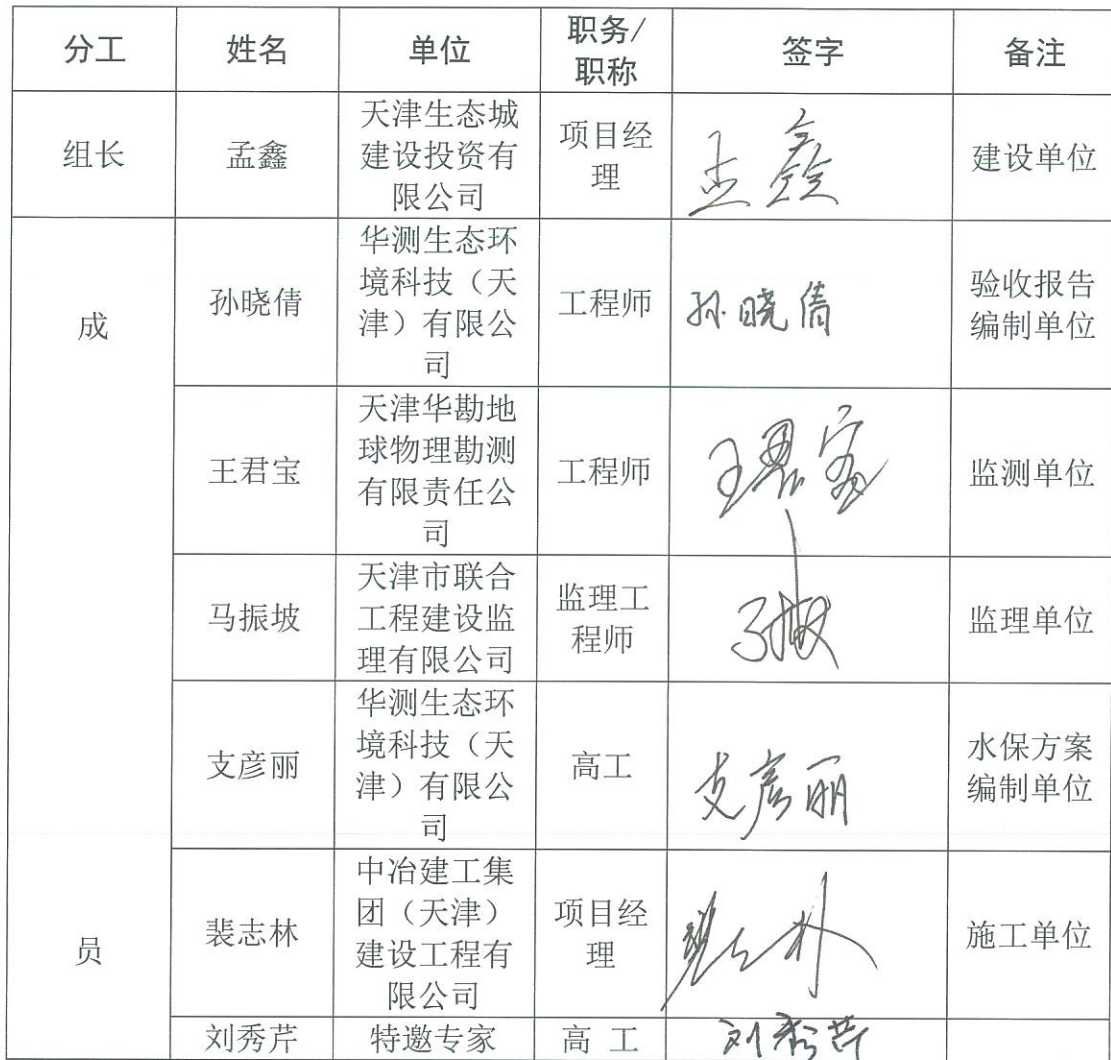 分工
姓名
单位
职务/
职称
签字
备注
组长
孟鑫
天津生态城
建设投资有
限公司
项目经
理
孟鑫
建设单位
成
孙晓倩
华测生态环
境科技（天
津）有限公
司
工程师
孙晓倩
验收报告
编制单位
王君宝
天津华勘地
球物理勘测
有限责任公
司
工程师
王君宝
监测单位
马振坡
天津市联合
工程建设监
理有限公司
监理工
程师
监理单位
支彦丽
华测生态环
境科技（天
津）有限公
司
高工
支彦丽
水保方案
编制单位
员
裴志林
中冶建工集
团（天津）
建设工程有
限公司
项目经
理
施工单位
刘秀芹
特邀专家
高 工
刘秀芹